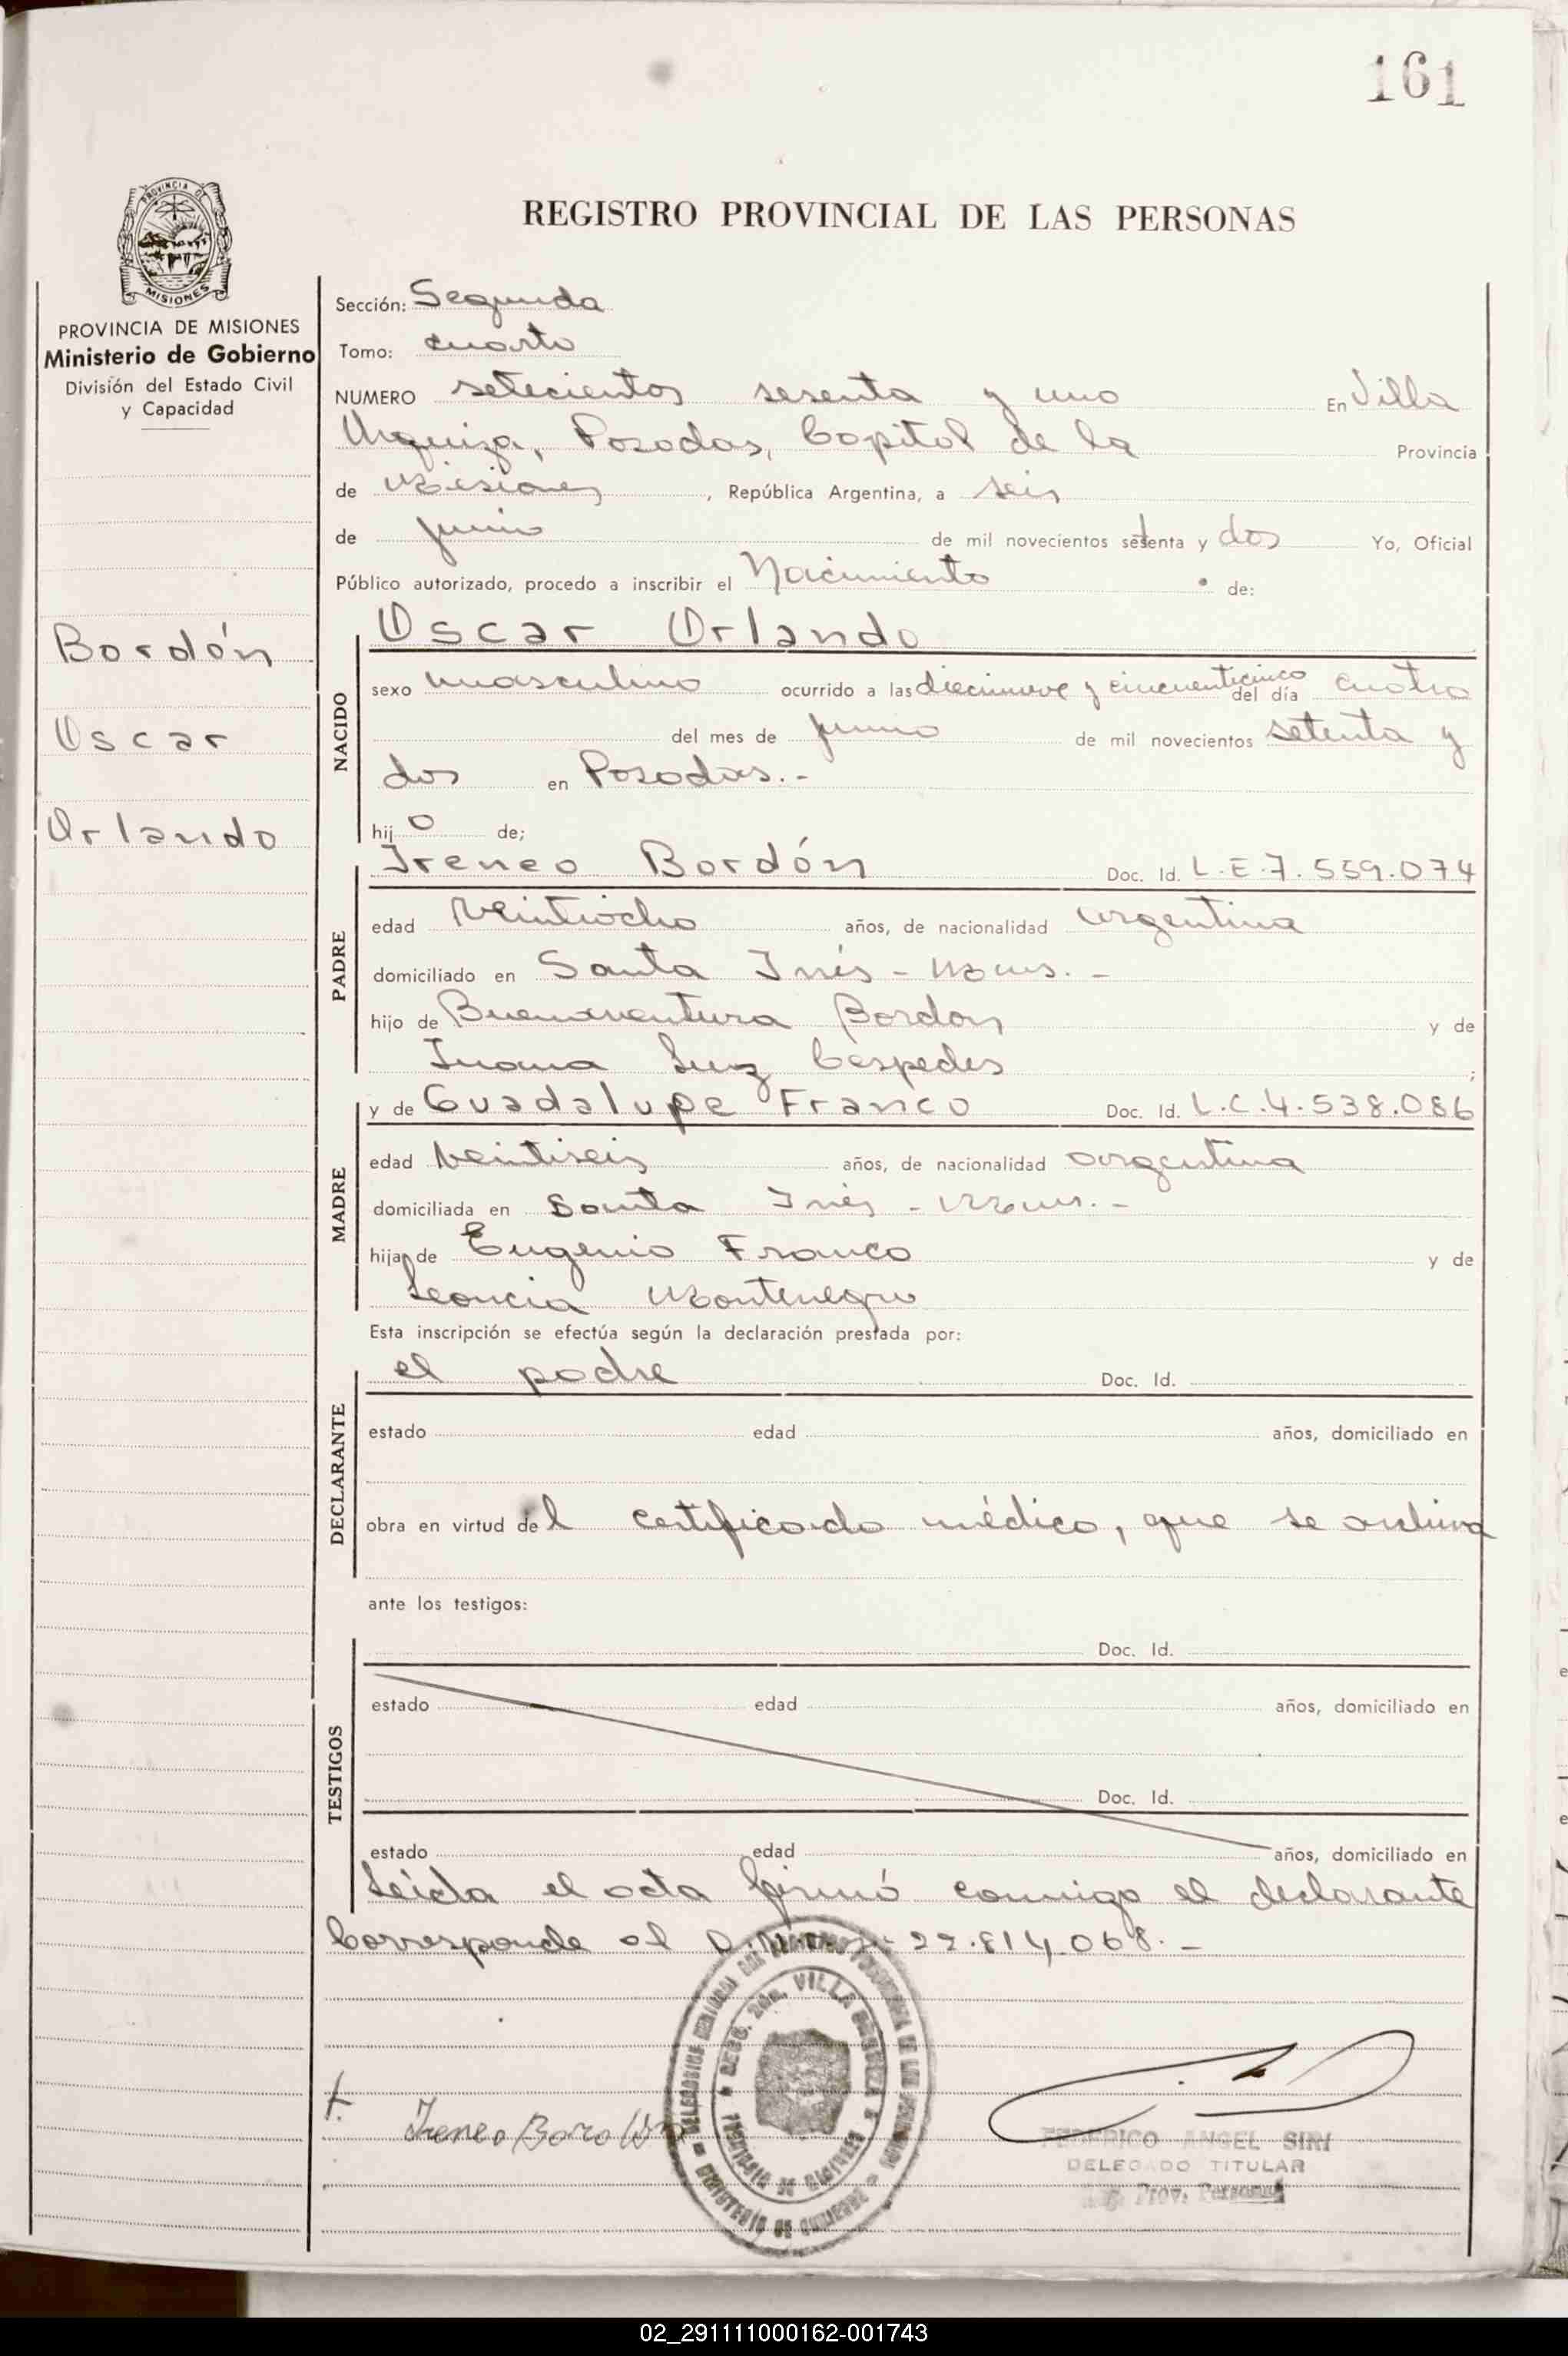 161
REGISTRO PROVINCIAL DE LAS PERSONAS
PROVINCIA DE
MISIONES
PROVINCIA DE MISIONES
Ministerio de Gobierno
División del Estado Civil
y Capacidad
Bordón
Oscar
Orlando
Sección: Segunda
Tomo: cuarto
NUMERO setecientos sesenta y uno En Villa
Urquiza, Posadas, Capital de la Provincia
de Misiones, República Argentina, a seis
de junio de mil novecientos setenta y dos Yo, Oficial
Público autorizado, procedo a inscribir el Nacimiento de:
NACIDO
Oscar Orlando
sexo masculino ocurrido a las diecinueve y cincuenticinco del día cuatro
del mes de junio de mil novecientos setenta y
dos en Posadas.-
hijo de;
PADRE
Ireneo Bordón Doc. Id. L.E.7.559.074
edad veintiocho años, de nacionalidad argentina
domiciliado en Santa Inés - Mnes. -
hijo de Buenaventura Bordon y de
Juana Luz Cespedes ;
MADRE
y de Guadalupe Franco Doc. Id. L.C.4.538.086
edad veintiseis años, de nacionalidad argentina
domiciliada en Santa Inés - Mnes. -
hija de Eugenio Franco y de
Leoncia Montenegro
Esta inscripción se efectúa según la declaración prestada por:
DECLARANTE
el padre Doc. Id.
estado edad años, domiciliado en
obra en virtud del certificado médico, que se archiva
ante los testigos:
TESTIGOS
Doc. Id.
estado edad años, domiciliado en
Doc. Id.
estado edad años, domiciliado en
Leida el acta firmó conmigo el declarante
Corresponde al 22.814.068.-
VILLA URQUIZA
PROVINCIA DE MISIONES
MINISTERIO DE GOBIERNO
Ireneo Bordón
FEDERICO ANGEL SIRI
DELEGADO TITULAR
Prov. Personas
02_291111000162-001743